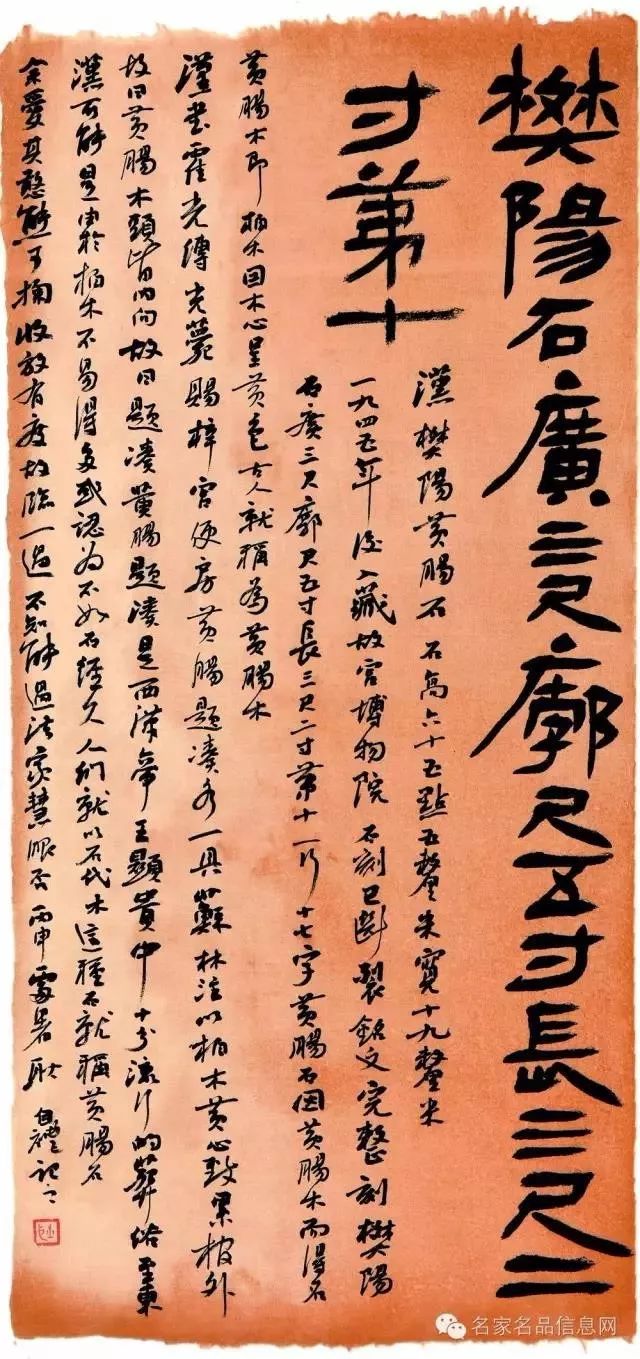 樊陽石廣三尺廓尺五寸長三尺二
寸第十
漢樊陽黃腸石石高六十五點五釐米寬十九釐米
一九四五年後入藏故宮博物院石刻已斷裂銘文完整刻樊陽
石廣三尺廓尺五寸長三尺二寸第十一行十七字黃腸石因黃腸木而得名
黃腸木即柏木因木心呈黃色古人就稱為黃腸木
漢書霍光傳光薨賜梓宮便房黃腸題湊各一具蘇林注以柏木黃心致累棺外
故曰黃腸木頭皆內向故曰題湊黃腸題湊是西漢帝王顯貴中十分流行的葬俗至東
漢可能是由於柏木不易得多或認為不如石經久人們就以石代木這種石就稱黃腸石
余愛其憨態可掬收放有度故臨一過不知能過法家慧眼否丙申處暑耿自禮記之
名家名品信息网